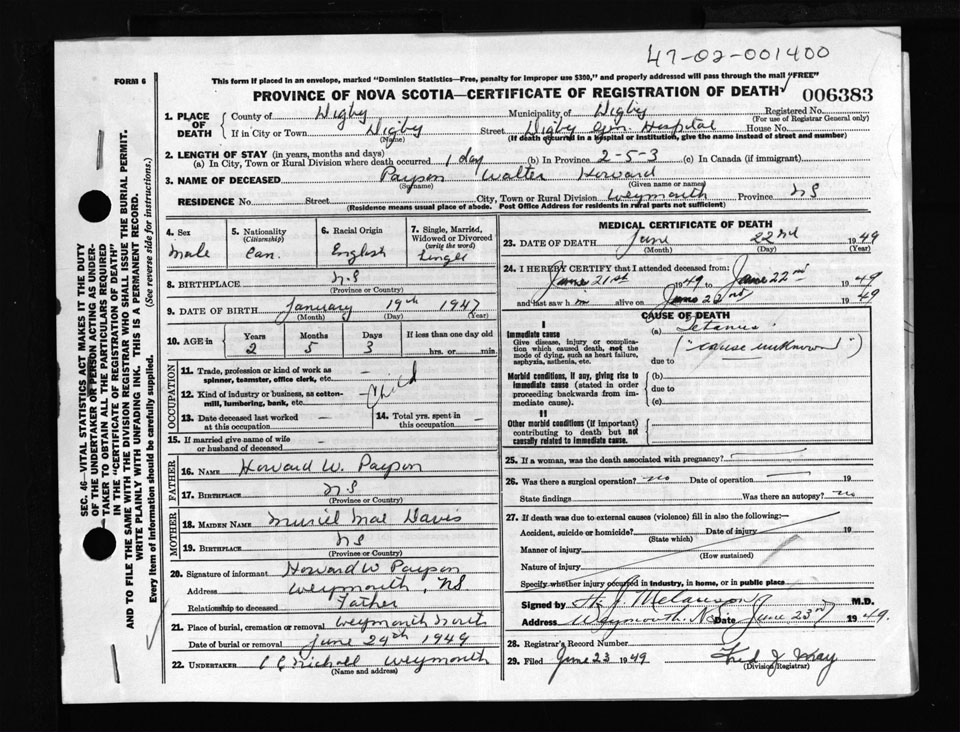 47-02-001400
FORM 6
This form if placed in an envelope, marked "Dominion Statistics—Free, penalty for improper use $300," and properly addressed will pass through the mail "FREE"
PROVINCE OF NOVA SCOTIA—CERTIFICATE OF REGISTRATION OF DEATH
006383
1. PLACE OF DEATH
County of Digby Municipality of Digby Registered No.
(For use of Registrar General only)
If in City or Town Digby Street Digby Gen Hospital House No.
(Name) (If death occurred in a hospital or institution, give the name instead of street and number)
2. LENGTH OF STAY (in years, months and days)
(a) In City, Town or Rural Division where death occurred 1 day (b) In Province 2-5-3 (c) In Canada (if immigrant)
3. NAME OF DECEASED Payson Walter Howard
(Surname) (Given name or names)
RESIDENCE No. Street City, Town or Rural Division Weymouth Province N S
(Residence means usual place of abode. Post Office Address for residents in rural parts not sufficient)
4. Sex
male
5. Nationality
(Citizenship)
Can.
6. Racial Origin
English
7. Single, Married, Widowed or Divorced
(write the word)
Single
8. BIRTHPLACE N.S
(Province or Country)
9. DATE OF BIRTH January 19th 1947
(Month) (Day) (Year)
10. AGE in
Years Months Days If less than one day old
2 5 3 hrs. or min.
OCCUPATION
11. Trade, profession or kind of work as spinner, teamster, office clerk, etc. —
12. Kind of industry or business, as cotton-mill, lumbering, bank, etc. Child
13. Date deceased last worked at this occupation —
14. Total yrs. spent in this occupation —
15. If married give name of wife or husband of deceased —
FATHER
16. NAME Howard W. Payson
17. BIRTHPLACE N.S
(Province or Country)
MOTHER
18. MAIDEN NAME Muriel Mae Davis
19. BIRTHPLACE N S
(Province or Country)
20. Signature of informant Howard W Payson
Address Weymouth, NS
Relationship to deceased Father
21. Place of burial, cremation or removal Weymouth North
Date of burial or removal June 24th 1949
22. UNDERTAKER Nichell Weymouth
(Name and address)
MEDICAL CERTIFICATE OF DEATH
23. DATE OF DEATH June 22nd 1949
(Month) (Day) (Year)
24. I HEREBY CERTIFY that I attended deceased from:
June 21st 1949 to June 22nd 1949
and last saw him alive on June 22nd 1949
CAUSE OF DEATH
I
Immediate cause
Give disease, injury or complication which caused death, not the mode of dying, such as heart failure, asphyxia, asthenia, etc.
(a) Tetanus.
("cause unknown")
due to
Morbid conditions, if any, giving rise to immediate cause (stated in order proceeding backwards from immediate cause).
(b)
due to
(c)
II
Other morbid conditions (if important) contributing to death but not causally related to immediate cause.
25. If a woman, was the death associated with pregnancy?
26. Was there a surgical operation? no Date of operation — 19
State findings Was there an autopsy? no
27. If death was due to external causes (violence) fill in also the following:—
Accident, suicide or homicide? Date of injury 19
(State which)
Manner of injury
(How sustained)
Nature of injury
Specify whether injury occurred in industry, in home, or in public place
Signed by H. J. Melanson M.D.
Address Weymouth. N.S. Date June 23rd 1949.
28. Registrar's Record Number
29. Filed June 23 1949 Fred J May
(Division Registrar)
SEC. 46—VITAL STATISTICS ACT MAKES IT THE DUTY
OF THE UNDERTAKER OR PERSON ACTING AS UNDER-
TAKER TO OBTAIN ALL THE PARTICULARS REQUIRED
IN THE "CERTIFICATE OF REGISTRATION OF DEATH"
AND TO FILE THE SAME WITH THE DIVISION REGISTRAR WHO SHALL ISSUE THE BURIAL PERMIT.
WRITE PLAINLY WITH UNFADING INK. THIS IS A PERMANENT RECORD.
Every item of information should be carefully supplied. (See reverse side for instructions.)